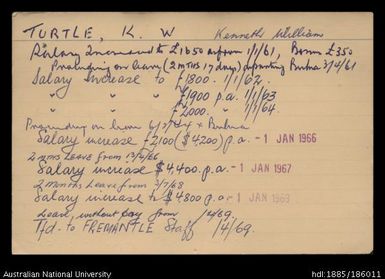 TURTLE, K. W Kenneth William
Salary Increased to £1650 as from 1/1/61, Bonus £350
Proceeding on leave (2 mths 17 days) departing Burma 3/4/61
Salary increase to £1800. 1/1/62.
" " " £1900 p.a. 1/1/63
" " " £2000. " 1/1/64
Proceeding on leave 6/3/64 Burma
Salary increase £2100 ($4200) p.a. -1 JAN 1966
2 mths LEAVE from 13/4/66
Salary increase $4,400. p.a. -1 JAN 1967
2 months Leave from 3/7/68
Salary increase to $4800 p.a. -1 JAN 1969
Leave without pay from /4/69.
T/d. to FREMANTLE Staff /4/69.
Australian National University
hdl:1885/186011